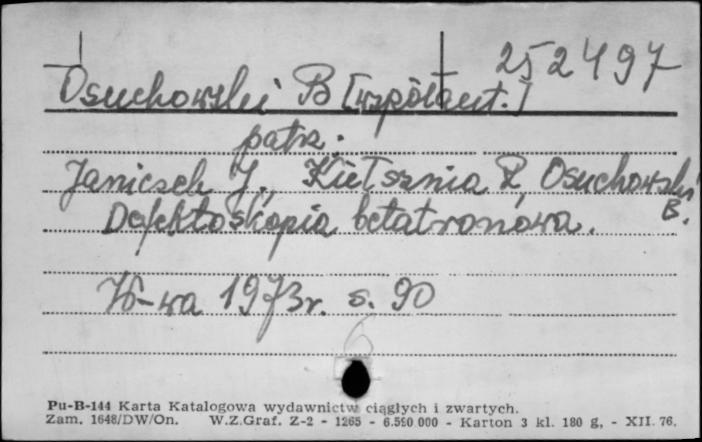 252497
Osuchowski B [współaut.]
patrz:
Janiczek J., Kiełsznia R, Osuchowski B.
Defektoskopia betatronowa.
W-wa 1973r. s. 90
6
Pu-B-144 Karta Katalogowa wydawnictw ciągłych i zwartych.
Zam. 1648/DW/On. W.Z.Graf. Z-2 - 1265 - 6.590 000 - Karton 3 kl. 180 g, - XII. 76.